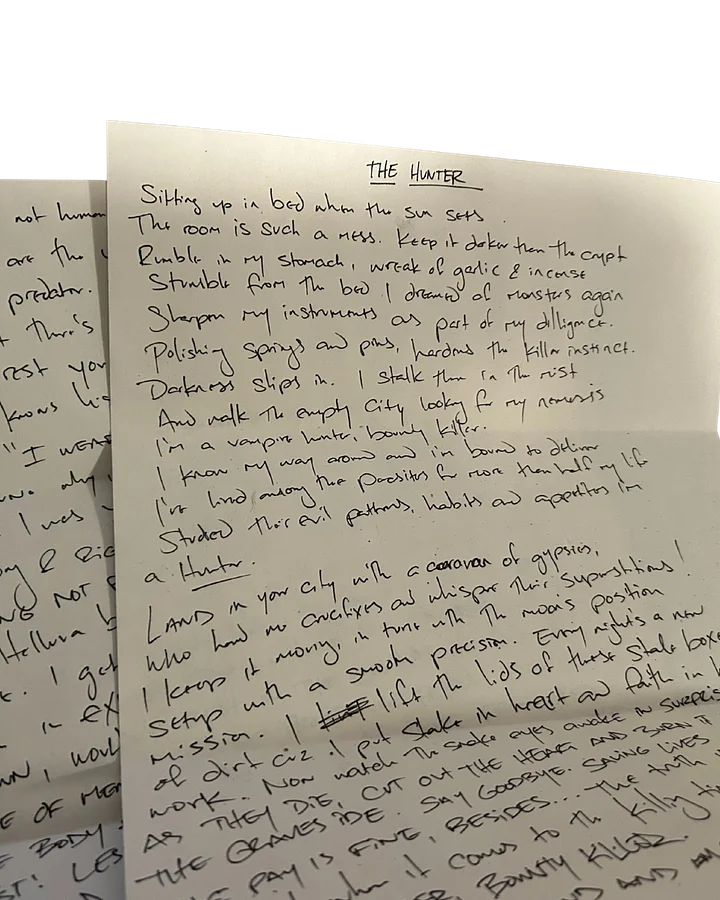 THE HUNTER
Sitting up in bed when the sun sets.
The room is such a mess. Keep it darker than the crypt
Rumble in my stomach, wreak of garlic & incense
Stumble from the bed I dreamed of monsters again
Sharpen my instruments as part of my dilligence.
Polishing springs and pins, hardens the killer instinct.
Darkness slips in. I stalk them in the mist
And walk the empty city looking for my nemesis
I'm a vampire hunter, bounty killer.
I know my way around and i'm bound to deliver
I've lived among the parasites for more than half my life
Studied their evil patterns, habits and appetites i'm
a Hunter.
LAND in your city with a caravan of gypsies,
who hand me crucifixes and whisper their superstitions!
I keep it moving, in tune with the moon's position
Setup with a smooth precision. Every night's a new
mission. I lift the lids of these stale boxes
of dirt cuz I put stake in heart and faith in h
work. Now watch the snake eyes awake in surprise
AS THEY DIE, CUT OUT THE HEART AND BURN IT
THE GRAVESIDE. SAY GOODBYE. SAVING LIVES
PAY IS FINE, BESIDES... The truth
when it comes to the killing
BOUNTY KILLER.
AND
not human
are the
predator.
there's
rest your
knows his
" I
I was
NOT
Helluva
. I get
in
, I would
OF
BODY